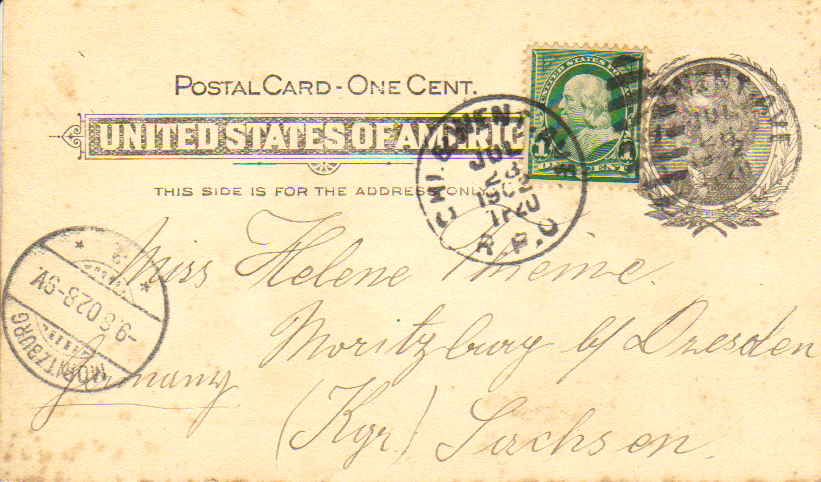 POSTAL CARD - ONE CENT.
UNITED STATES OF AMERIC
THIS SIDE IS FOR THE ADDRESS ONLY
JUL
28
1902
1120
R.P.O
Miss Helene Thieme.
Moritzburg b/ Dresden
Germany
(Kgr.) Sachsen.
MORITZBURG
-9.8.02.8-9V.